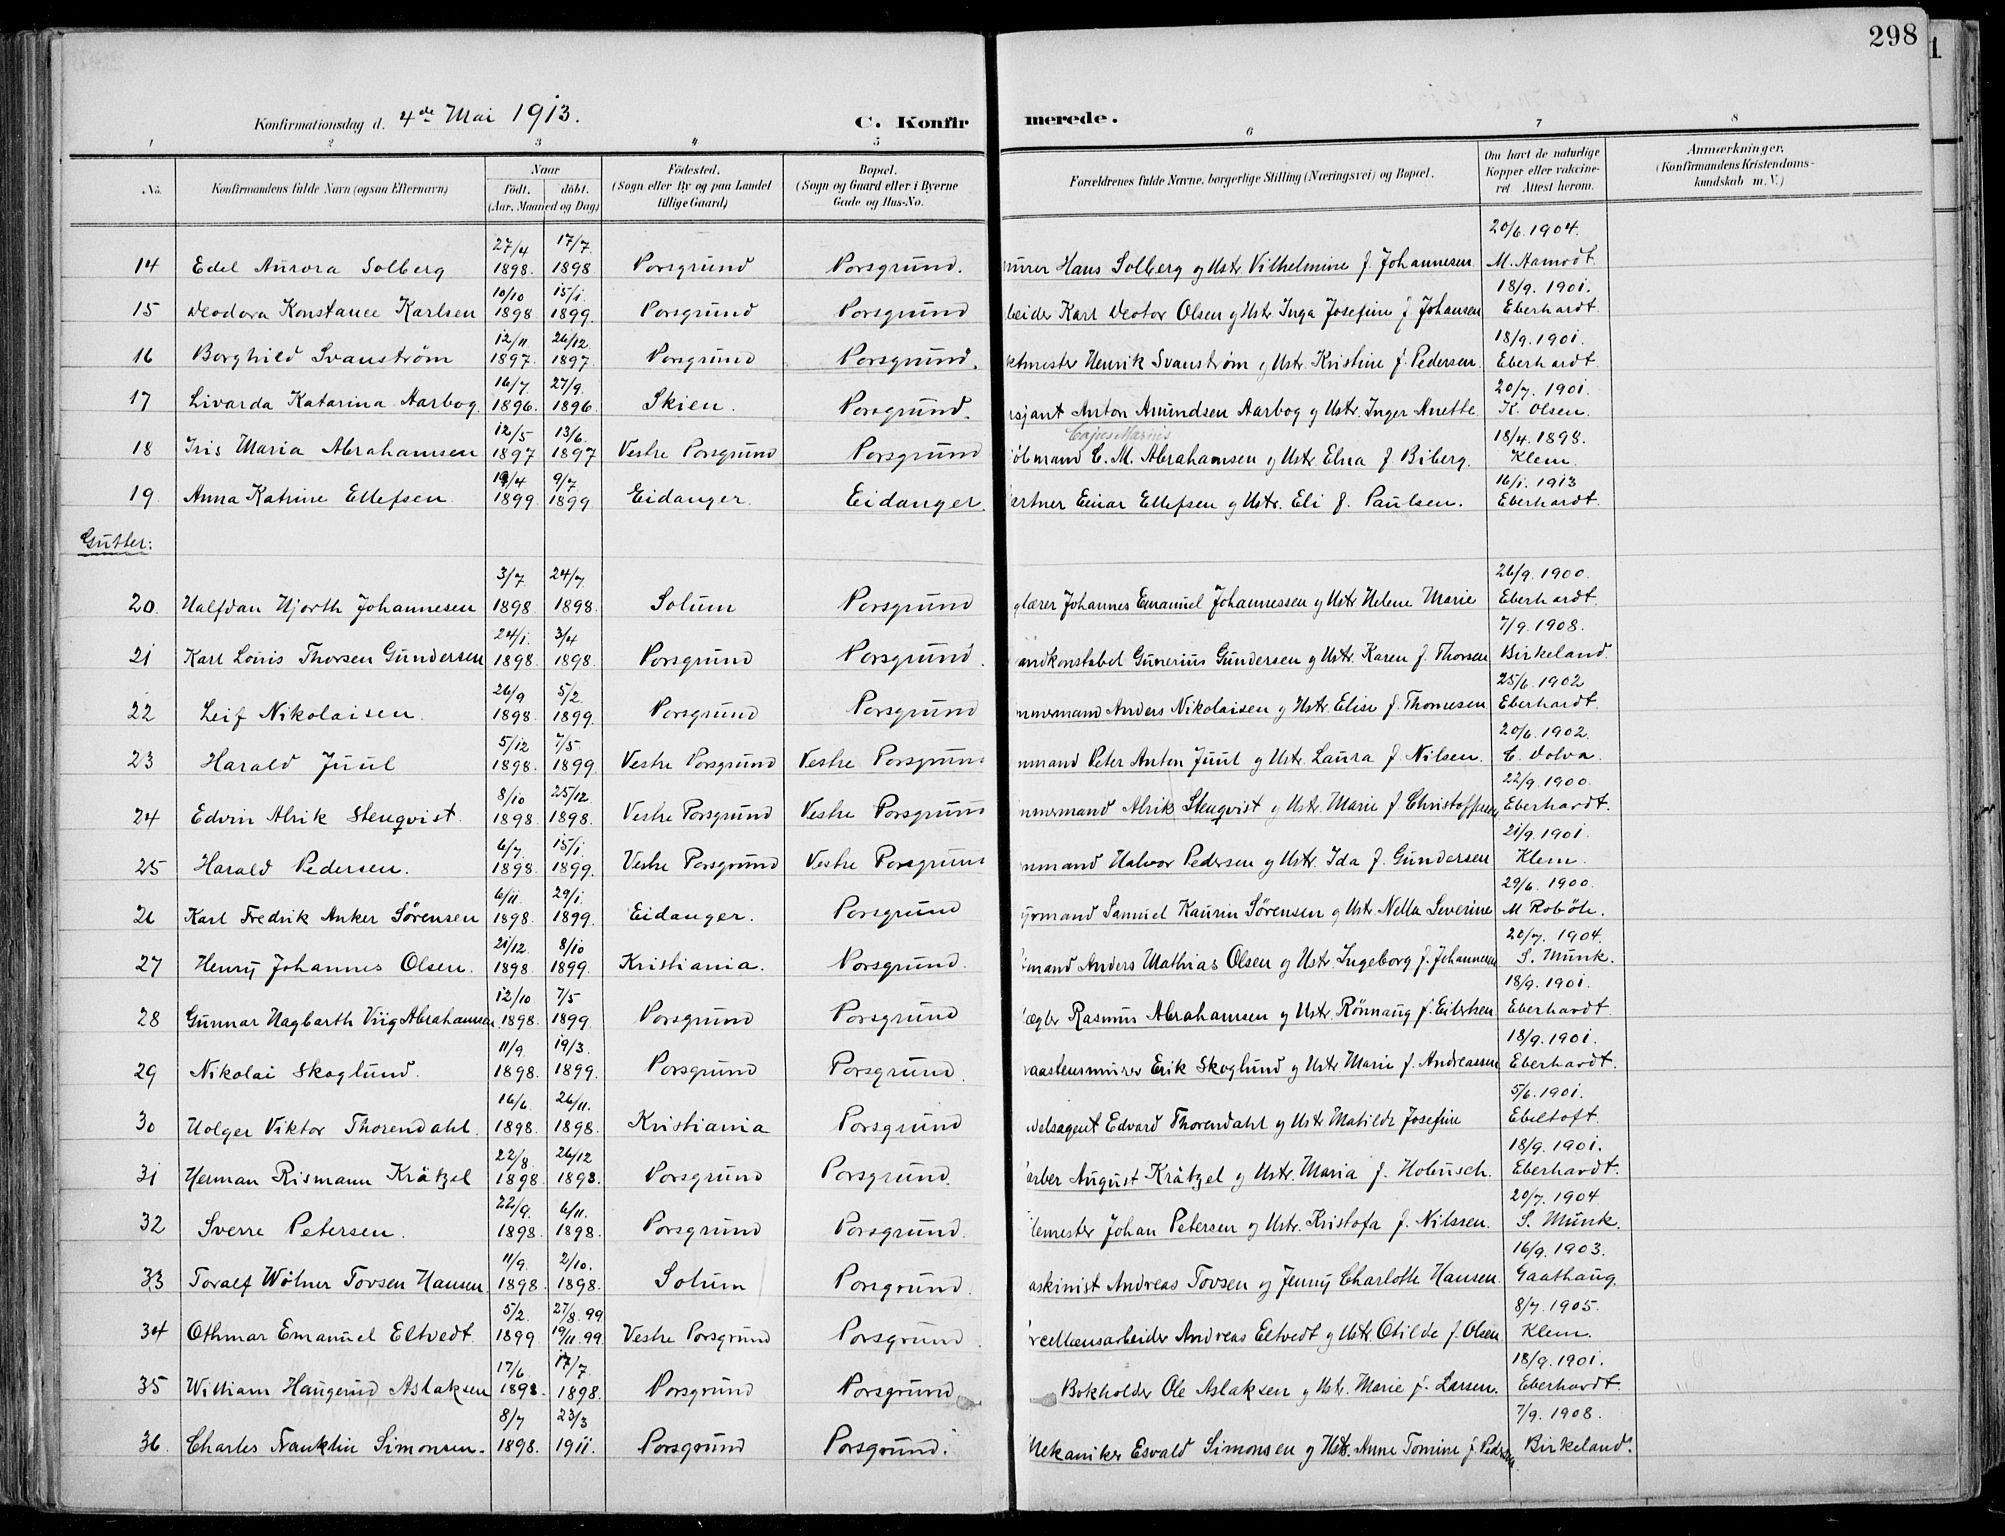 298
Konfirmationsdag d. 4de Mai 1913. C. Konfir merede.
1 2 3 4 5 6 7 8
No. Konfirmandens fulde Navn (ogsaa Efternavn) Naar født. døbt. (Aar, Maaned og Dag) Fødested. (Sogn eller By og paa Landet tillige Gaard) Bopæl. (Sogn og Gaard eller i Byerne Gade og Hus-No. Forældrenes fulde Navne, borgerlige Stilling (Næringsvei) og Bopæl. Om havt de naturlige Kopper eller vakcineret Attest herom. Anmærkninger, (Konfirmandens Kristendomskundskab m. V.)
27/4 17/7 20/6. 1904.
14 Edel Aurora Solberg 1898. 1898 Porsgrund Porsgrund. murer Hans Solberg og Ustr. Vilhelmine f. Johannesen M. Aamodt
10/10 15/1 18/9. 1901.
15 Deodora Konstance Karlsen 1898 1899. Porsgrund Porsgrund beider Karl Deotor Olsen og Ustr Inga Josefine f Johansen Eberhardt.
12/11 26/12 18/9. 1901.
16 Borghild Svanström 1897. 1897. Porsgrund Porsgrund. ktmester Henrik Svanström og Ustr. Kristine f. Pedersen. Eberhardt.
16/7. 27/9. 20/7. 1901.
17 Livarda Katarina Aarbog. 1896. 1896. Skien. Porsgrund. rsjant Anton Amundsen Aarbog og Ustr. Inger Anette. K. Olsen.
12/5 13/6. Cajus Marius 18/4. 1898.
18 Iris Maria Abrahamsen 1897 1897 Vestre Porsgrund Porsgrund jöbmand C. M. Abrahamsen og Ustr. Elna f Biberg. Klem.
19/4 9/7 16/1. 1913
19. Anna Katrine Ellefsen 1899 1899 Eidanger. Eidanger. artner Einar Ellefsen og Ustr. Eli f. Paulsen. Eberhardt.
Gutter:
3/7. 24/7. 26/9. 1900.
20. Halfdan Hjorth Johannesen 1898. 1898. Solum Porsgrund glarer Johannes Emanuel Johannessen og Ustr Helene Marie Eberhardt
24/1. 3/4 7/9. 1908.
21 Karl Louis Thorsen Gundersen 1898. 1898. Porsgrund Porsgrund. andkonstabel Gunerius Gundersen og Ustr. Karen f. Thorsen Birkeland.
26/9 5/2. 25/6. 1902
22 Leif Nikolaisen. 1898. 1899. Porsgrund Porsgrund mmermand Anders Nikolaisen og Ustr. Elise f. Thomesen Eberhardt.
5/12 7/5. 20/6. 1902.
23 Harald Juul 1898. 1899. Vestre Porsgrund Vestre Porsgrund mmand Peter Anton Juul og Ustr. Laura f. Nilsen. C. Dolva.
8/10 25/12. 22/9. 1900.
24 Edvin Alrik Stenqvist. 1898. 1898. Vestre Porsgrund Vestre Porsgrund mmermand Alrik Stenqvist og Ustr. Marie f Christoffersen Eberhardt.
6/7. 15/1. 21/9. 1901.
25 Harald Pedersen. 1898. 1899. Vestre Porsgrund Vestre Porsgrund mmand Halvor Pedersen og Ustr. Ida f. Gundersen Klem.
6/11 29/1. 29/6. 1900.
26 Karl Fredrik Anker Sörensen 1898. 1899. Eidanger. Porsgrund yrmand Samuel Kaurin Sörensen og Ustr Nella Severine M Roböle.
21/12. 8/10 20/7. 1904.
27 Henry Johannes Olsen. 1898. 1899. Kristiania. Porsgrund. mand Anders Mathias Olsen og Ustr. Ingeborg f. Johannesen S. Munk.
12/10. 7/5 18/9. 1901.
28 Gunnar Hagbarth Viig Abrahamsen 1898. 1899. Porsgrund Porsgrund ægler Rasmus Abrahamsen og Ustr. Rönnaug f. Eilertsen Eberhardt
11/9. 19/3. 18/9. 1901.
29 Nikolai Skoglund. 1898. 1899. Porsgrund Porsgrund. raastensmurer Erik Skoglund og Ustr Marie f. Andreassen Eberhardt.
16/6. 26/11. 5/6. 1901.
30 Holger Viktor Thorendahl. 1898. 1898. Kristiania Porsgrund ndelsagent Edvard Thorendahl og Ustr Matilde Josefine Ebeltoft.
22/8. 26/12 18/9. 1901.
31 Herman Rismann Krätzel 1898. 1898. Porsgrund Porsgrund. arber August Krätzel og Ustr. Maria f. Hobusch. Eberhardt.
22/9. 6/11. 20/7. 1904
32 Sverre Petersen. 1898. 1898. Porsgrund Porsgrund. lemester Johan Petersen og Ustr. Kristofa f. Nilssen. S. Munk.
11/9. 2/10. 16/9. 1903.
33 Toralf Wölner Tovsen Hansen 1898. 1898. Solum Porsgrund. askinist Andreas Tovsen og Jenny Charlotte Hansen. Gaathaug.
5/2. 27/8.99 8/7. 1905.
34 Othmar Emanuel Eltvedt. 1899. 19/11.99. Vestre Porsgrund Porsgrund. rcellænsarbeider Andreas Eltvedt og Ustr Otilde f. Olsen Klem.
17/6 17/7. 18/9. 1901.
35 William Haugerud Aslaksen 1898. 1898. Porsgrund Porsgrund Bokholder Ole Aslaksen og Ustr. Marie f. Larsen. Eberhardt.
8/7 23/3 7/9. 1908.
36. Charles Franklin Simonsen. 1898. 1911. Porsgrund Porsgrund. Mekaniker Esvald Simonsen og Ustr. Anne Tomine f. Pedersen. Birkeland.